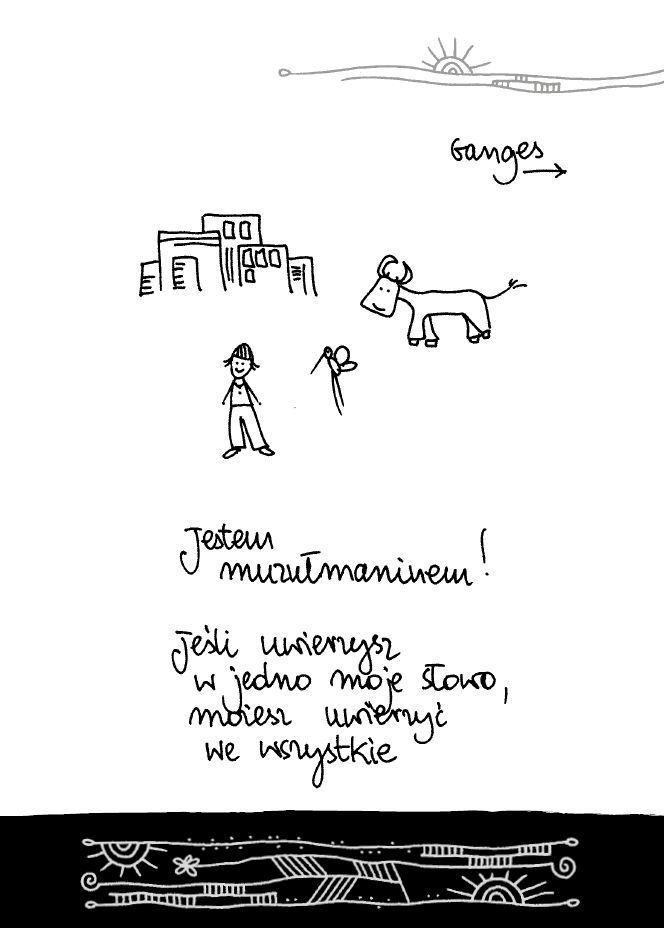 Ganges
Jestem
muzułmaninem!
Jeśli uwierzysz
w jedno moje słowo,
możesz uwierzyć
we wszystkie